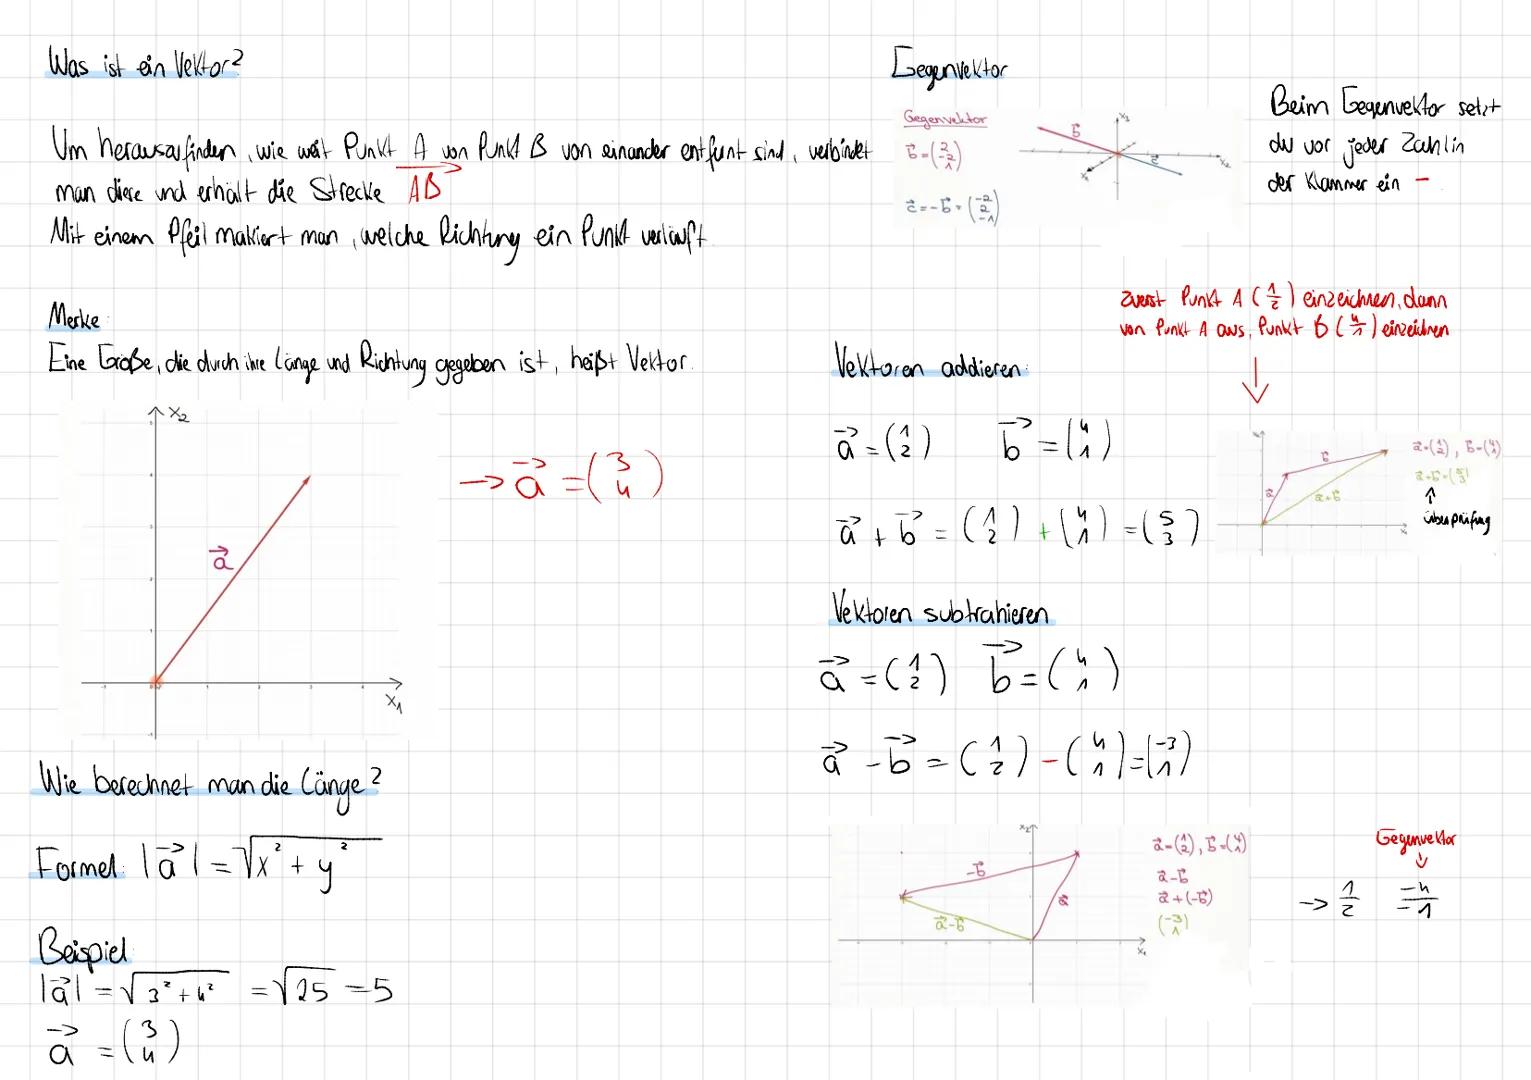 Was ist ein Vektor?
Um herauszufinden, wie weit Punkt A von Punkt B von einander entfernt sind, verbindet
man diese und erhält die Strecke AB
Mit einem Pfeil makiert man, welche Richtung ein Punkt verläuft.
Merke:
Eine Größe, die durch ihre Länge und Richtung gegeben ist, heißt Vektor.
x₂
4
3
2
1
a⃗
-1 1 2 3 4
-1
x₁
→ a⃗ = (3 4)
Wie berechnet man die Länge?
Formel: |a⃗| = √x² + y²
Beispiel
|a⃗| = √3² + 4² = √25 = 5
a⃗ = (3 4)
Gegenvektor
Gegenvektor
b⃗ = (2 -2 1)
c⃗ = -b⃗ = (-2 2 -1)
b⃗
c⃗
x₃
x₂
x₁
Beim Gegenvektor setzt
du vor jeder Zahl in
der Klammer ein -
zuerst Punkt A (1/2) einzeichnen, dann
von Punkt A aus, Punkt B (4/1) einzeichnen
Vektoren addieren:
a⃗ = (1 2) b⃗ = (4 1)
a⃗ + b⃗ = (1 2) + (4 1) = (5 3)
b⃗
a⃗
a⃗+b⃗
a⃗=(1 2), b⃗=(4 1)
a⃗+b⃗=(5 3)
↑
überprüfung
Vektoren subtrahieren
a⃗ = (1 2) b⃗ = (4 1)
a⃗ - b⃗ = (1 2) - (4 1) = (-3 1)
x₂
-b⃗
a⃗
a⃗-b⃗
x₁
a⃗=(1 2), b⃗=(4 1)
a⃗-b⃗
a⃗+(-b⃗)
(-3 1)
Gegenvektor
↓
→ 1/2 -4/-1